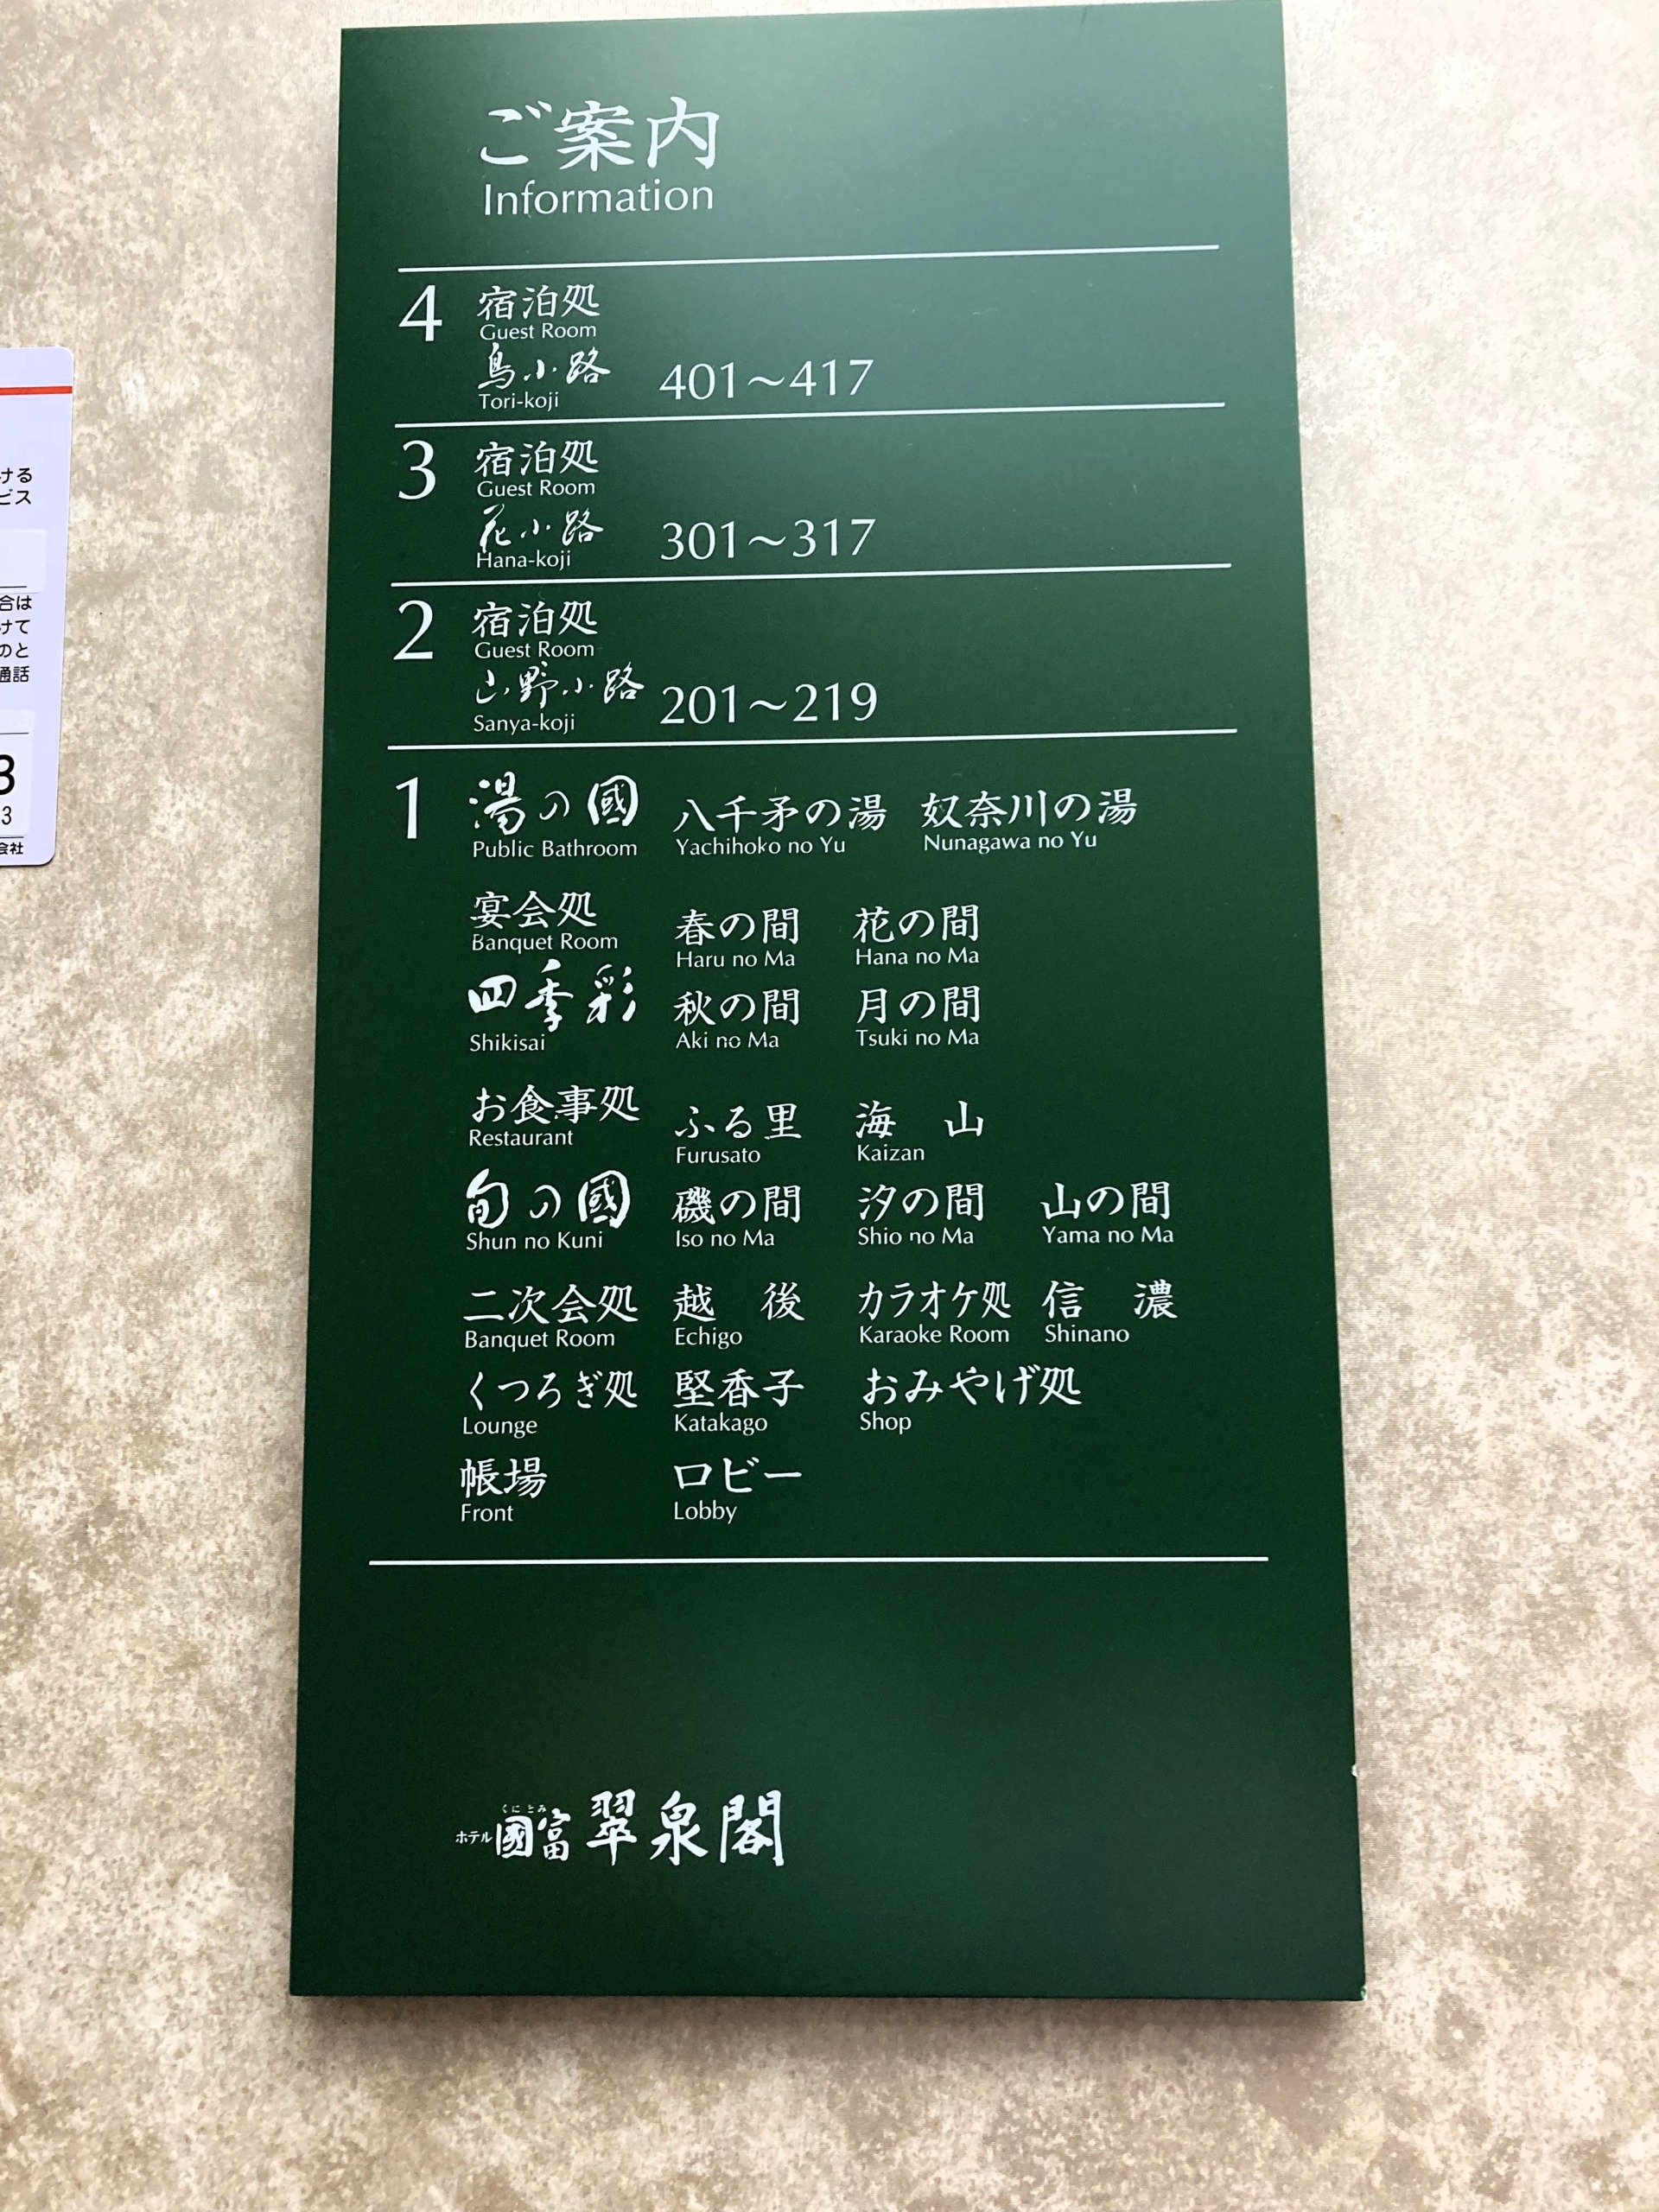 ご案内
Information
4 宿泊処
Guest Room
鳥小路 401〜417
Tori-koji
3 宿泊処
Guest Room
花小路 301〜317
Hana-koji
2 宿泊処
Guest Room
山野小路 201〜219
Sanya-koji
1 湯の國 八千矛の湯 奴奈川の湯
Public Bathroom Yachihoko no Yu Nunagawa no Yu
宴会処 春の間 花の間
Banquet Room Haru no Ma Hana no Ma
四季彩 秋の間 月の間
Shikisai Aki no Ma Tsuki no Ma
お食事処 ふる里 海 山
Restaurant Furusato Kaizan
旬の國 磯の間 汐の間 山の間
Shun no Kuni Iso no Ma Shio no Ma Yama no Ma
二次会処 越 後 カラオケ処 信 濃
Banquet Room Echigo Karaoke Room Shinano
くつろぎ処 堅香子 おみやげ処
Lounge Katakago Shop
帳場 ロビー
Front Lobby
くにとみ
ホテル 國富 翠泉閣
ける
ビス
合は
けて
のと
通話
3
3
会社